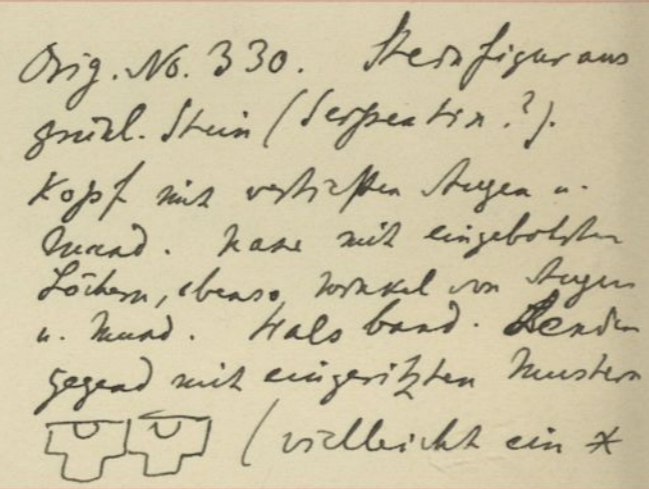 Orig. No. 330. Steinfigur aus
grünl. Stein (Serpentin?).
Kopf mit vertieften Augen u.
Mund. Nase mit eingebohrten
Löchern, ebenso Winkel von Augen
u. Mund. Halsband. Lenden
gegend mit eingeritzten Mustern
(vielleicht ein *